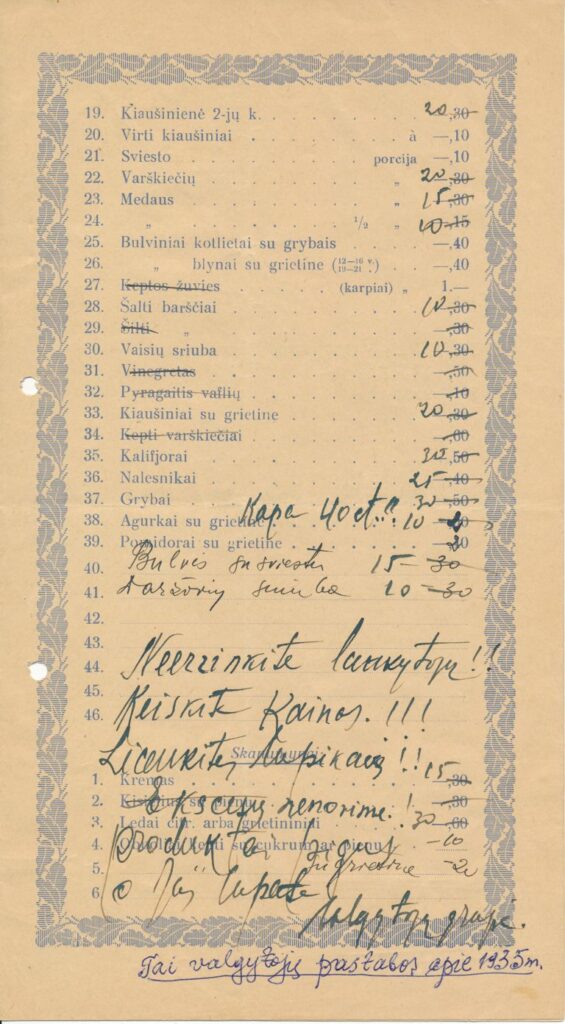 19. Kiaušinienė 2-jų k. 20 —,30
20. Virti kiaušiniai à —,10
21. Sviesto porcija —,10
22. Varškiečių „ 20 —,30
23. Medaus „ 15 —,30
24. „ 1/2 „ 10 —,15
25. Bulviniai kotlietai su grybais —,40
26. „ blynai su grietine (12—16 v. 19—21 .) —,40
27. Keptos žuvies (karpiai) „ 1.—
28. Šalti barščiai 10 —,30
29. Šilti „ —,30
30. Vaisių sriuba 10 —,30
31. Vinegretas —,50
32. Pyragaitis vaflių —,10
33. Kiaušiniai su grietine 20 —,30
34. Kepti varškiečiai —,60
35. Kalifjorai 30 —,50
36. Nalesnikai 25 —,40
37. Grybai 30 —,50
Kapa 40 ct.!!
38. Agurkai su grietine 10
39. Pomidorai su grietine
40. Bulvės su sviestu 15 — 30
41. Daržovių sriuba 10 — 30
42.
43.
44. Neerzinkite lankytojų!!
45.
46. Keiskite Kainos. !!!
Skanumynai
Licenkite, lupikai !!
1. Kremas 15 —,30
2. su —,30
Ekscesų nenorime. !
3. Ledai cit. arba grietininiai 30 —,60
4. su cukrum ar pienu —10
Produktai pigūs
5. grietine —20
6. o Jūs lupate
Valgytojų grupė.
Tai valgytojų pastabos apie 1935 m.